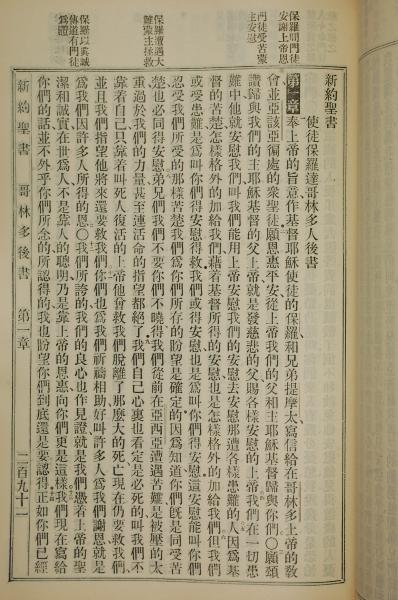 新約聖書
使徒保羅達哥林多人後書
第一章 奉上帝的旨意作基督耶穌使徒的保羅和兄弟提摩太寫信給在哥林多上帝的教
會並亞該亞徧處的衆聖徒願恩惠平安從上帝我們的父和主耶穌基督歸與你們〇願頌
讚歸與我們的主耶穌基督的父上帝就是發慈悲的父賜各樣安慰的上帝我們在一切患
難中他就安慰我們叫我們能用上帝安慰我們的安慰去安慰那遭各樣患難的人因爲基
督的苦楚怎樣格外的加給我們藉着基督所得的安慰也是怎樣格外的加給我們但我們
或受患難是爲叫你們得安慰得救我們或得安慰也是爲叫你們得安慰這安慰能叫你們
忍受我們所受的那樣苦楚我們爲你們所存的盼望是確定的因爲知道你們旣是同受苦
楚也必同得安慰弟兄們我們不要你們不曉得我們從前在亞西亞遭遇苦難是被壓的太
重過於我們的力量甚至連活命的指望都絕了我們自己心裏也看定是必死的叫我們不
靠着自己只靠着叫死人復活的上帝他曾救我們脫離了那麼大的死亡現在仍要救我們
並且我們指望他將來還要救我們你們也爲我們祈禱相助好叫許多人爲我們謝恩就是
爲我們因許多人所得的恩〇我們所誇的我們的良心也作見證就是我們憑着上帝的聖
潔和誠實在世爲人不是靠人的聰明乃是靠上帝的恩惠向你們更是這樣我們現在寫給
你們的話並不外乎你們所念的所認得的我也盼望你們到底還是要認得正如你們已經
新約聖書 哥林多後書 第一章 二百九十一
保羅問門徒
安謝上帝恩
門徒受苦蒙
主安慰
保羅遭遇大
難蒙主拯救
保羅以眞誠
傳道有門徒
爲證